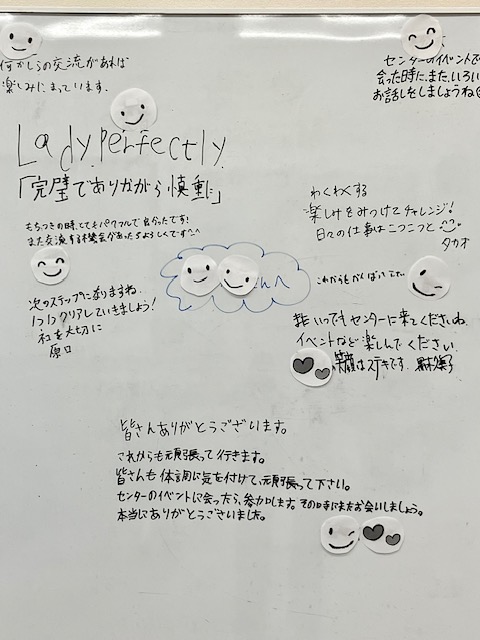 何かしらの交流があれば
楽しみにまっています.
センターのイベントで
会った時に、また、いろい
お話しをしましょうね
Lady Perfectly
「完璧でありながら慎重に」
もちつきの時、とてもパワフルで
また交流する機会があったらよろしくです^^
わくわくする
楽しみをみつけてチャレンジ!
日々の仕事はこつこつと
タカオ
さんへ
これからもがんばって
次のステップに なりますね.
1つ1つクリアしていきましょう!
私を大切に
原口
いつでもセンターに来てくださいね
イベントなど楽しんでください.
笑顔はステキです.
皆さんありがとうございます。
これからも頑張って行きます。
皆さんも体調に気を付けて、頑張って下さい。
センターのイベントに会ったら、参加します。その時にまたお会いしましょう。
本当にありがとうございました。